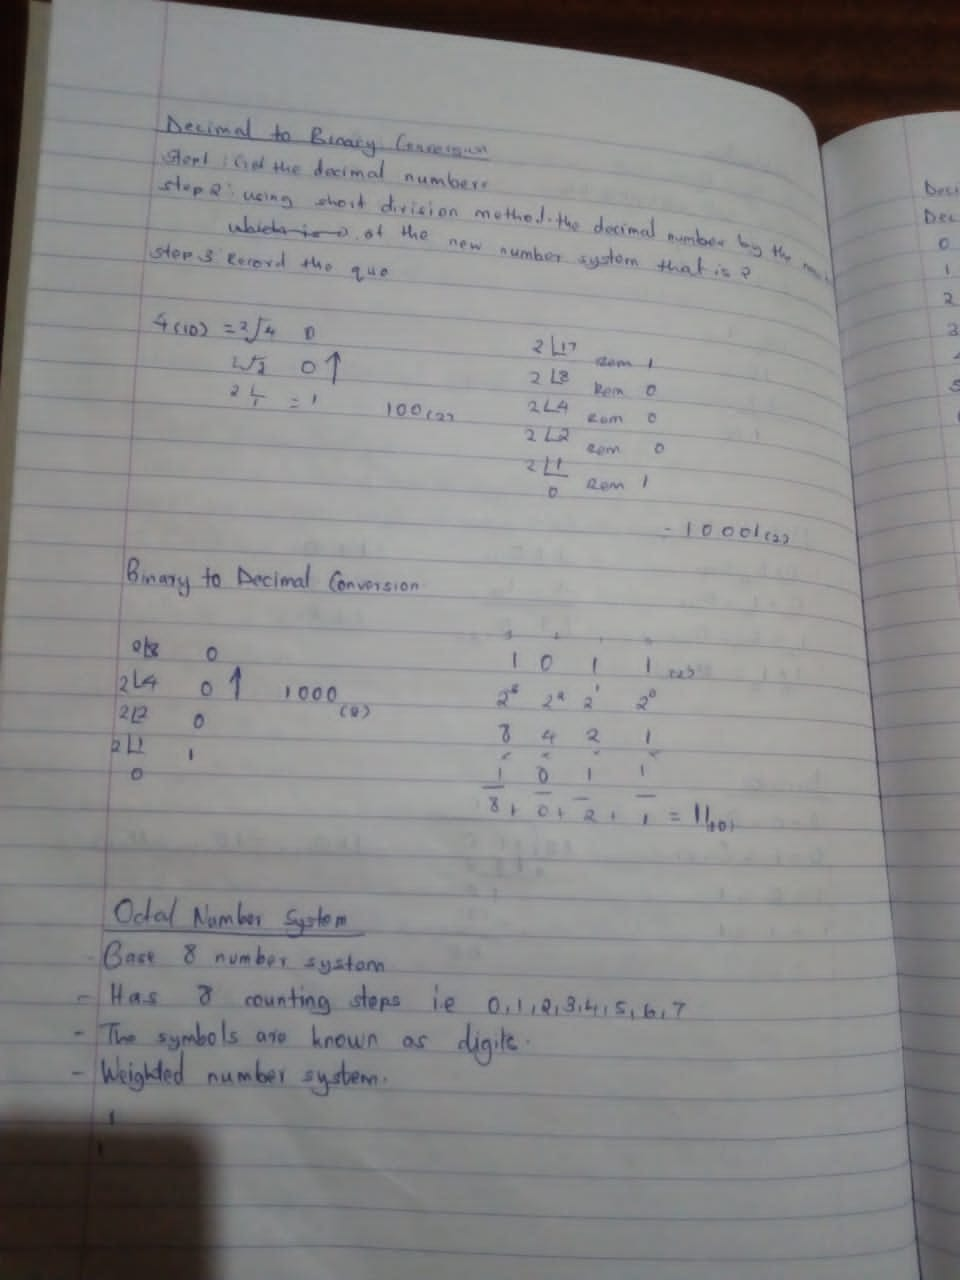 Decimal to Binary Conversion
Step 1: Get the decimal number.
step 2: using short division method. the decimal number by the
which is of the new number system that is 2
step 3 Record the quo
4(10) = 2√4 0
2√2 0 ↑
2 L1 = 1
100(2)
2 L17 Rem 1
2 L8 Rem 0
2 L4 Rem 0
2 L2 Rem 0
2 L1 Rem 1
0
= 10001(2)
Binary to Decimal Conversion
2L8 0
2L4 0 ↑ 1000
2L2 0
2L1 1
0
1 0 1 1 (2)
2³ 2² 2¹ 2⁰
8 4 2 1
× × × ×
1 0 1 1
8 + 0 + 2 + 1 = 11(10)
Octal Number System
- Base 8 number system
- Has 8 counting steps i.e 0,1,2,3,4,5,6,7
- The symbols are known as digits.
- Weighted number system.
Deci
Dec
0
1
2
3
5